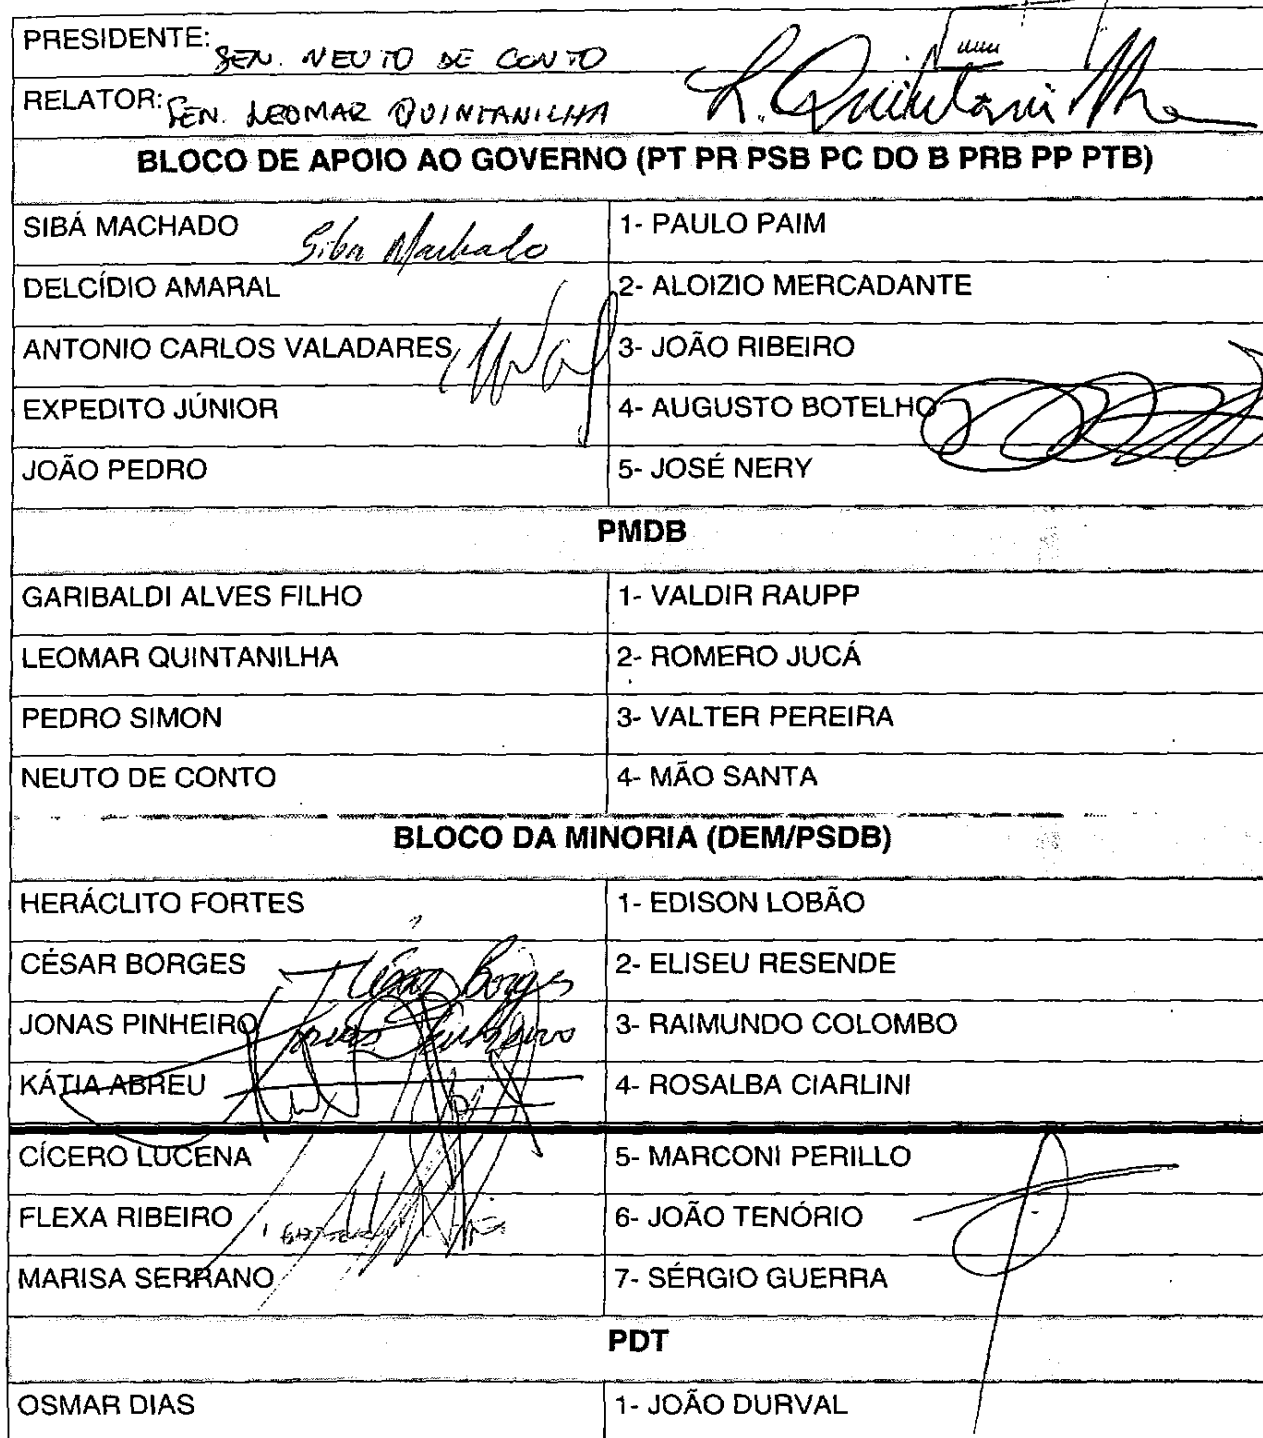 PRESIDENTE: SEN. NEUTO DE CONTO
RELATOR: SEN. LEOMAR QUINTANILHA L. Quintanilha
BLOCO DE APOIO AO GOVERNO (PT PR PSB PC DO B PRB PP PTB)
SIBÁ MACHADO Siba Machado 1- PAULO PAIM
DELCÍDIO AMARAL 2- ALOIZIO MERCADANTE
ANTONIO CARLOS VALADARES 3- JOÃO RIBEIRO
EXPEDITO JÚNIOR 4- AUGUSTO BOTELHO
JOÃO PEDRO 5- JOSÉ NERY
PMDB
GARIBALDI ALVES FILHO 1- VALDIR RAUPP
LEOMAR QUINTANILHA 2- ROMERO JUCÁ
PEDRO SIMON 3- VALTER PEREIRA
NEUTO DE CONTO 4- MÃO SANTA
BLOCO DA MINORIA (DEM/PSDB)
HERÁCLITO FORTES 1- EDISON LOBÃO
CÉSAR BORGES César Borges 2- ELISEU RESENDE
JONAS PINHEIRO Jonas Pinheiro 3- RAIMUNDO COLOMBO
KÁTIA ABREU 4- ROSALBA CIARLINI
CÍCERO LUCENA 5- MARCONI PERILLO
FLEXA RIBEIRO 6- JOÃO TENÓRIO
MARISA SERRANO 7- SÉRGIO GUERRA
PDT
OSMAR DIAS 1- JOÃO DURVAL